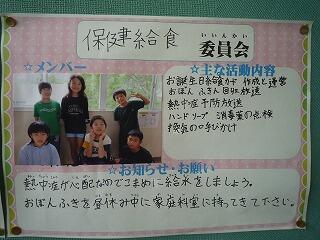 保健給食
いいんかい
委員会
☆メンバー
☆主な活動内容
お誕生日給食カード 作成と運営
おぼん ふきん 回収放送
熱中症予防放送
ハンドソープ 消毒薬の点検
換気の呼びかけ
☆お知らせ・お願い
熱中症が心配なのでこまめに給水をしましょう。
おぼんふきを昼休み中に家庭科室に持ってきて下さい。